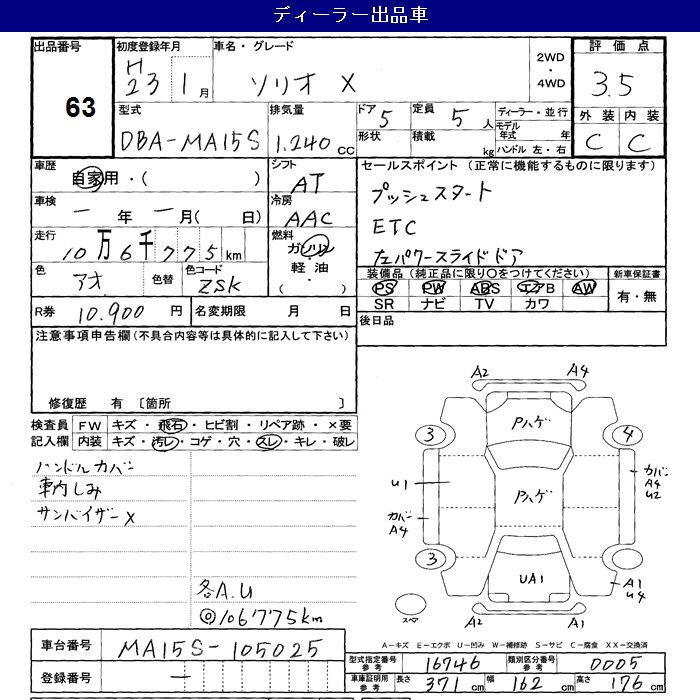 ディーラー出品車
出品番号 63
初度登録年月 H23 1月
車名・グレード ソリオ X
2WD ・ 4WD
評価点 3.5
外装 C 内装 C
型式 DBA-MA15S
排気量 1.240 cc
ドア 5 定員 5人
形状 積載 kg
ディーラー・並行
モデル年式 年
ハンドル 左・右
車歴 自家用・( )
シフト AT
セールスポイント (正常に機能するものに限ります)
プッシュスタート
ETC
左パワースライドドア
車検 一年 一月( 日)
冷房 AAC
走行 10万6千775km
燃料 ガソリン・軽・油・( )
色 アオ 色替 色コード ZSK
装備品 (純正品に限り○をつけてください)
新車保証書 有・無
PS PW ABS エアB AW
SR ナビ TV カワ
R券 10.900円
名変期限 月 日
後日品
注意事項申告欄(不具合内容等は具体的に記入して下さい)
修復歴 有 〔箇所 〕
検査員記入欄
FW キズ・飛石・ヒビ割・リペア跡・×要
内装 キズ・汚レ・コゲ・穴・スレ・キレ・破レ
ハンドルカバー
車内しみ
サンバイザーX
各A.U
◎106775km
A2 A4
Pハゲ
3 4
U1
Pハゲ
カバー A4 U2
カバー A4
3
UA1
A1 U4
スペア
A2 A1
A-キズ E-エクボ U-凹み W-補修跡 S-サビ C-腐食 XX-交換済
車台番号 MA15S-105025
登録番号 —
型式指定番号 参考 16746 類別区分番号 参考 0005
車庫証明用 参考 長さ 371cm 幅 162cm 高さ 176cm